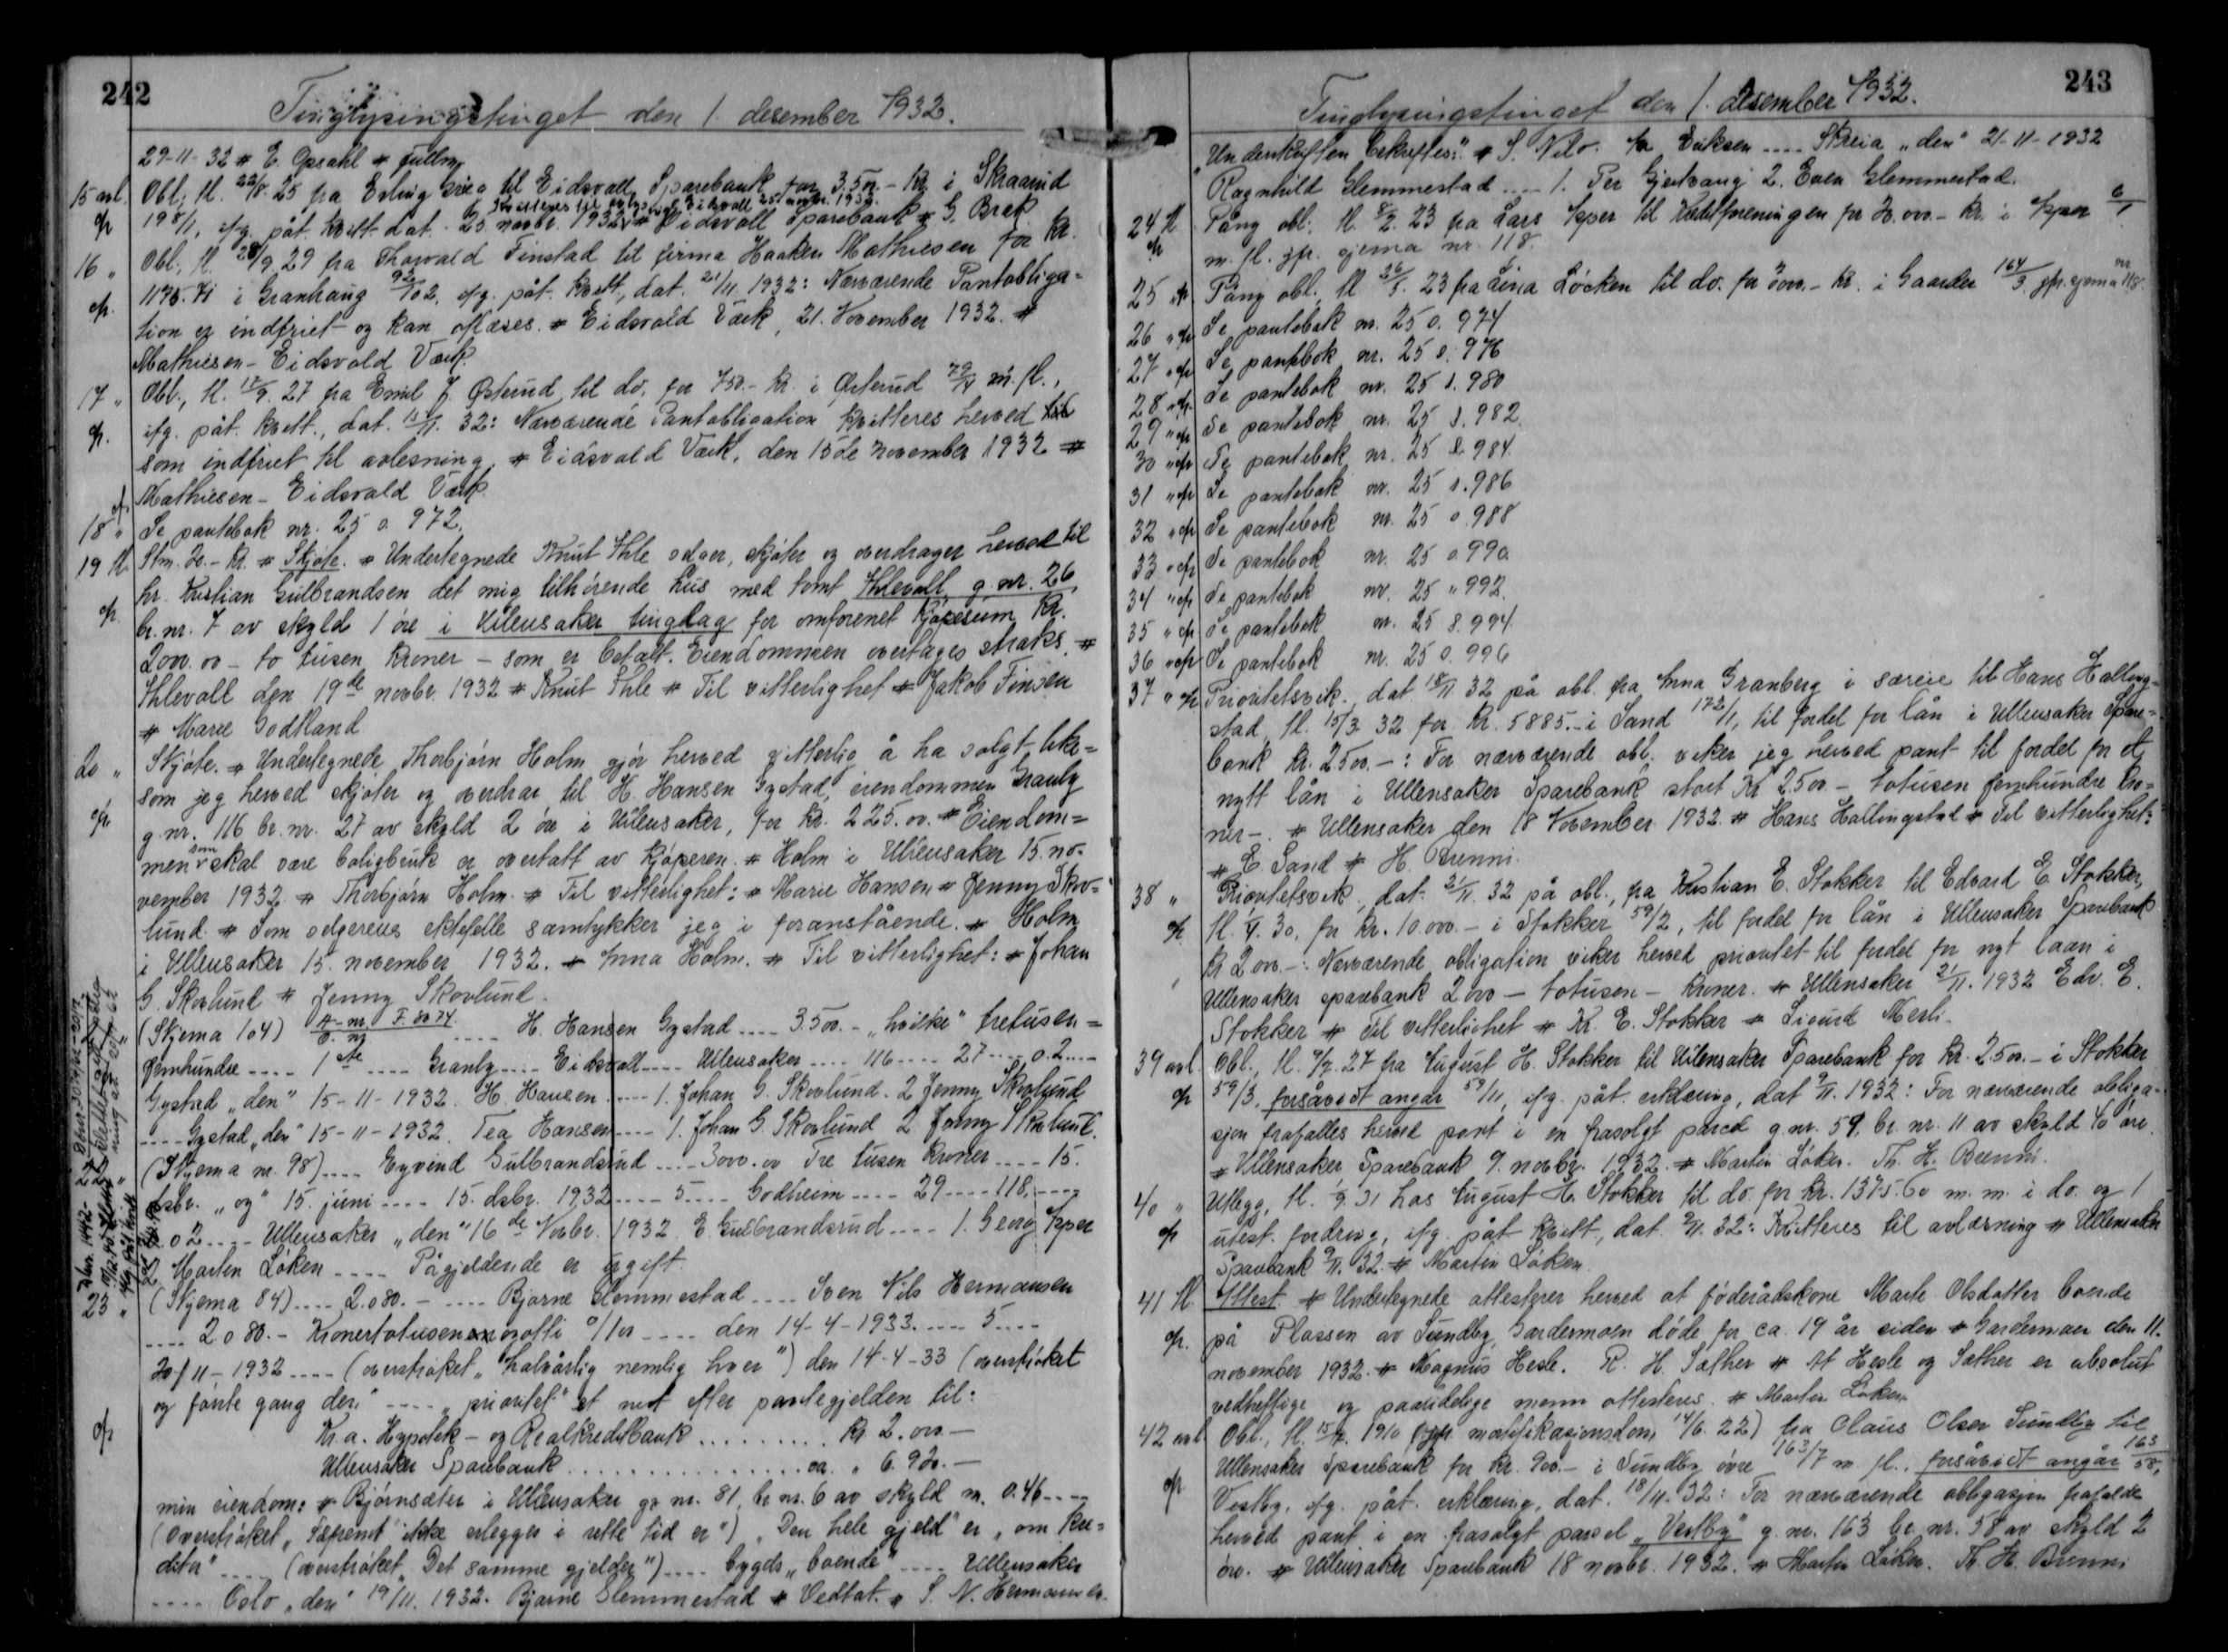 242
Tinglysingstinget den 1. desember 1932.
29-11-32 # E. Opsahl # fullm.
15 avl. Obl., tl. 22/8. 25 fra Erling til Eidsvoll Sparebank for 3.500.- kr. i Skraarud
kvitteres til avlysning. Eidsvoll 25. novbr. 1932.
op 198/1, ifg. påt. kvitt. dat. 25 novbr. 1932 # Eidsvoll Sparebank # G. Brek
16 " Obl., tl. 28/9 29 fra Thorvald Finstad til firma Haaken Mathiesen for kr.
op. 1175.71 i Granhaug 92/102, ifg. påt. kvitt., dat. 21/11. 1932: Nærværende Pantobliga-
tion er indfriet og kan aflæses. # Eidsvold Værk, 21. November 1932. #
Mathiesen - Eidsvold Værk.
17 " Obl., tl. 12/9. 27 fra Emil J. Østerud til do. for 750.- kr. i Østerud m. fl.,
op. ifg. påt. kvitt., dat. 15/11. 32: Nærværende Pantobligation kvitteres herved
som indfriet til avlesning. # Eidsvold Værk, den 15de november 1932 #
Mathiesen - Eidsvold Værk.
18 " op Se pantebok nr. 25 s. 972.
19 tl. Stm. 20.- kr. # Skjøte. # Undertegnede Knut Ihle selger, skjøter og overdrager herved til
hr. Kristian Gulbrandsen det mig tilhørende hus med tomt Ihlevoll g. nr. 26
op br. nr. 7 av skyld 1 øre i Ullensaker tinglag for omforenet kjøpesum kr.
2000.00 - to tusen kroner - som er betalt. Eiendommen overtages straks. #
Ihlevoll den 19de novbr. 1932 # Knut Ihle # Til vitterlighet # Jakob Finsen
# Marie Godtland
20 " Skjøte. # Undertegnede Thorbjørn Holm gjør herved vitterlig å ha solgt like-
som jeg herved skjøter og overdrar til H. Hansen Gystad, eiendommen Granly
op g. nr. 116 br. nr. 27 av skyld 2 øre i Ullensaker, for kr. 225.00. # Eiendom-
men som skal være boligbruk er overtatt av kjøperen. # Holm i Ullensaker 15. no-
vember 1932. # Thorbjørn Holm. # Til vitterlighet: # Marie Hansen # Jenny Skov-
lund. # Som selgerens ektefelle samtykker jeg i foranstående. # Holm
i Ullensaker 15. november 1932. # Anna Holm. # Til vitterlighet: # Johan
G. Skovlund # Jenny Skovlund.
(Skjema 104) .... H. Hansen Gystad .... 3.500.- "hvilke" tretusen-
femhundre .... 1ste .... Granly .... Eidsvoll .... Ullensaker .... 116 .... 27 .... 0.2 ....
Gystad "den" 15-11-1932. H. Hansen .... 1. Johan G. Skovlund. 2 Jenny Skovlund
.... Gystad "den" 15-11-1932. Tea Hansen .... 1. Johan G. Skovlund 2 Jenny Skovlund.
22 " (Skjema nr. 98) .... Eyvind Gulbrandsrud .... 3000.00 Tre tusen kroner .... 15.
dsbr. "og" 15. juni .... 15. dsbr. 1932 .... 5 .... Godheim .... 29 .... 118. ....
0.02 .... Ullensaker "den" 16de Novbr. 1932 E. Gulbrandsrud .... 1. Georg Asper
2. Martin Løken .... Pågjeldende er ugift.
23 " (Skjema 84) .... 2.080.- .... Bjarne Glemmestad .... Sven Nils Hermansen
.... 2080.- Kronertotusen ogotti 0/100 .... den 14-4-1933. .... 5 ....
20/11-1932 .... (overstrøket "halvårlig nemlig hver") den 14-4-33 (overstrøket
og første gang den" .... "prioritet" et nest efter pantegjelden til:
op Kr.a. Hypotek- og Realkreditbank ......... kr. 2.000.-
Ullensaker Sparebank ............... ca. " 6.920.-
min eiendom: # Bjørnsæter i Ullensaker g. nr. 81, br. nr. 6 av skyld m. 0.46 ....
(Overstrøket "Såfremt ikke erlegges i rette tid er") "Den hele gjeld" er "om kre-
ditor" .... (overstrøket "Det samme gjelder") .... bygds "boende" .... Ullensaker
.... Oslo "den" 19/11. 1932. Bjarne Glemmestad # Vedtat. # S. N. Hermansen.
243
Tinglysingstinget den 1. desember 1932.
"Underskriften bekreftes:" # S. Eriksen .... Skreia "den" 21-11-1932
Ragnhild Glemmestad .... 1. Per Gjerlvang 2. Even Glemmestad.
24 tl Pång. obl. tl. 8/2. 23 fra Lars Asper til Kredittforeningen for 20.000.- kr. i Asper 6/1
op m. fl. jfr. skjema nr. 118.
25 " op Pång obl. tl 26/5. 23 fra Lina Løcken til do. for 3000.- kr. i Gaarder 164/3. jfr. skjema nr. 118.
26 " op Se pantebok nr. 25 s. 974
27 " op Se pantebok nr. 25 s. 976
28 " op Se pantebok nr. 25 s. 980
29 " op Se pantebok nr. 25 s. 982.
30 " op Se pantebok nr. 25 s. 984.
31 " op Se pantebok nr. 25 s. 986
32 " op Se pantebok nr. 25 s. 988
33 " op Se pantebok nr. 25 s. 990.
34 " op Se pantebok nr. 25 " 992.
35 " op Se pantebok nr. 25 s. 994.
36 " op Se pantebok nr. 25 s. 996
37 " op Prioritetsvik., dat. 18/11 32 på obl. fra Anna Granberg i særeie til Hans Halling-
stad, tl. 15/3 32 for kr. 5885.- i Sand 172/11, til fordel for lån i Ullensaker Spare-
bank kr. 2500.-: For nærværende obl. viker jeg herved pant til fordel for et
nytt lån i Ullensaker Sparebank stort Kr 2500 - totusen femhundre kro-
ner-. # Ullensaker den 18 November 1932. # Hans Hallingstad # Til vitterlighet:
# E. Sand # H. Brenni.
38 " Prioritetsvik., dat. 21/11. 32 på obl., fra Kristian E. Stokker til Edvard E. Stokker,
op tl. 30. for kr. 10.000.- i Stokker 59/2, til fordel for lån i Ullensaker Sparebank
kr 2000.-: Nærværende obligation viker herved prioritet til fordel for nyt laan i
Ullensaker sparebank 2000 - totusen - kroner. # Ullensaker 21/11. 1932 Edv. E.
Stokker # Til vitterlighet # Kr. E. Stokker # Sigurd Merli.
39 avl. Obl., tl. 27 fra August H. Stokker til Ullensaker Sparebank for kr. 2500.- i Stokker
op 59/3, forsåvidt angår 59/11, ifg. påt. erklæring, dat 9/11. 1932: For nærværende obliga-
sjon frafalles herved pant i en frasolgt parcel g. nr. 59, br. nr. 11 av skyld 40 øre.
# Ullensaker Sparebank 9. novbr. 1932. # Martin Løken. Th. H. Brenni.
40 " Utlegg, tl. 31 hos August H. Stokker til do. for kr. 1375.60 m. m. i do. og 1
op utest. fordring, ifg. påt. kvitt., dat. 9/11. 32: Kvitteres til avlæsning # Ullensaker
Sparebank 9/11. 32. # Martin Løken.
41 tl. Attest # Undertegnede attesterer herved at føderådskone Marte Olsdatter boende
op. på Plassen av Sundby, Gardermoen døde for ca. 19 år siden # Gardermoen den 11.
november 1932. # Magnus Hesle. R. H. Sæther # At Hesle og Sæther er absolut
vedheftige og paalidelige menn attesteres. # Martin Løken.
42 avl Obl., tl. 1910 (jfr. mortifikasjonsdom 14/6. 22) fra Claus Olsen Sundby til
Ullensaker Sparebank for kr. 900.- i Sundby øvre 163/7 m. fl., forsåvidt angår 163/58,
op Vestby, ifg. påt. erklæring, dat. 18/11. 32: For nærværende obligasjon frafalde
herved pant i en frasolgt parsel "Vestby" g. nr. 163 br. nr. 58 av skyld 2
øre. # Ullensaker Sparebank 18 novbr. 1932. # Martin Løken. Th. H. Brenni